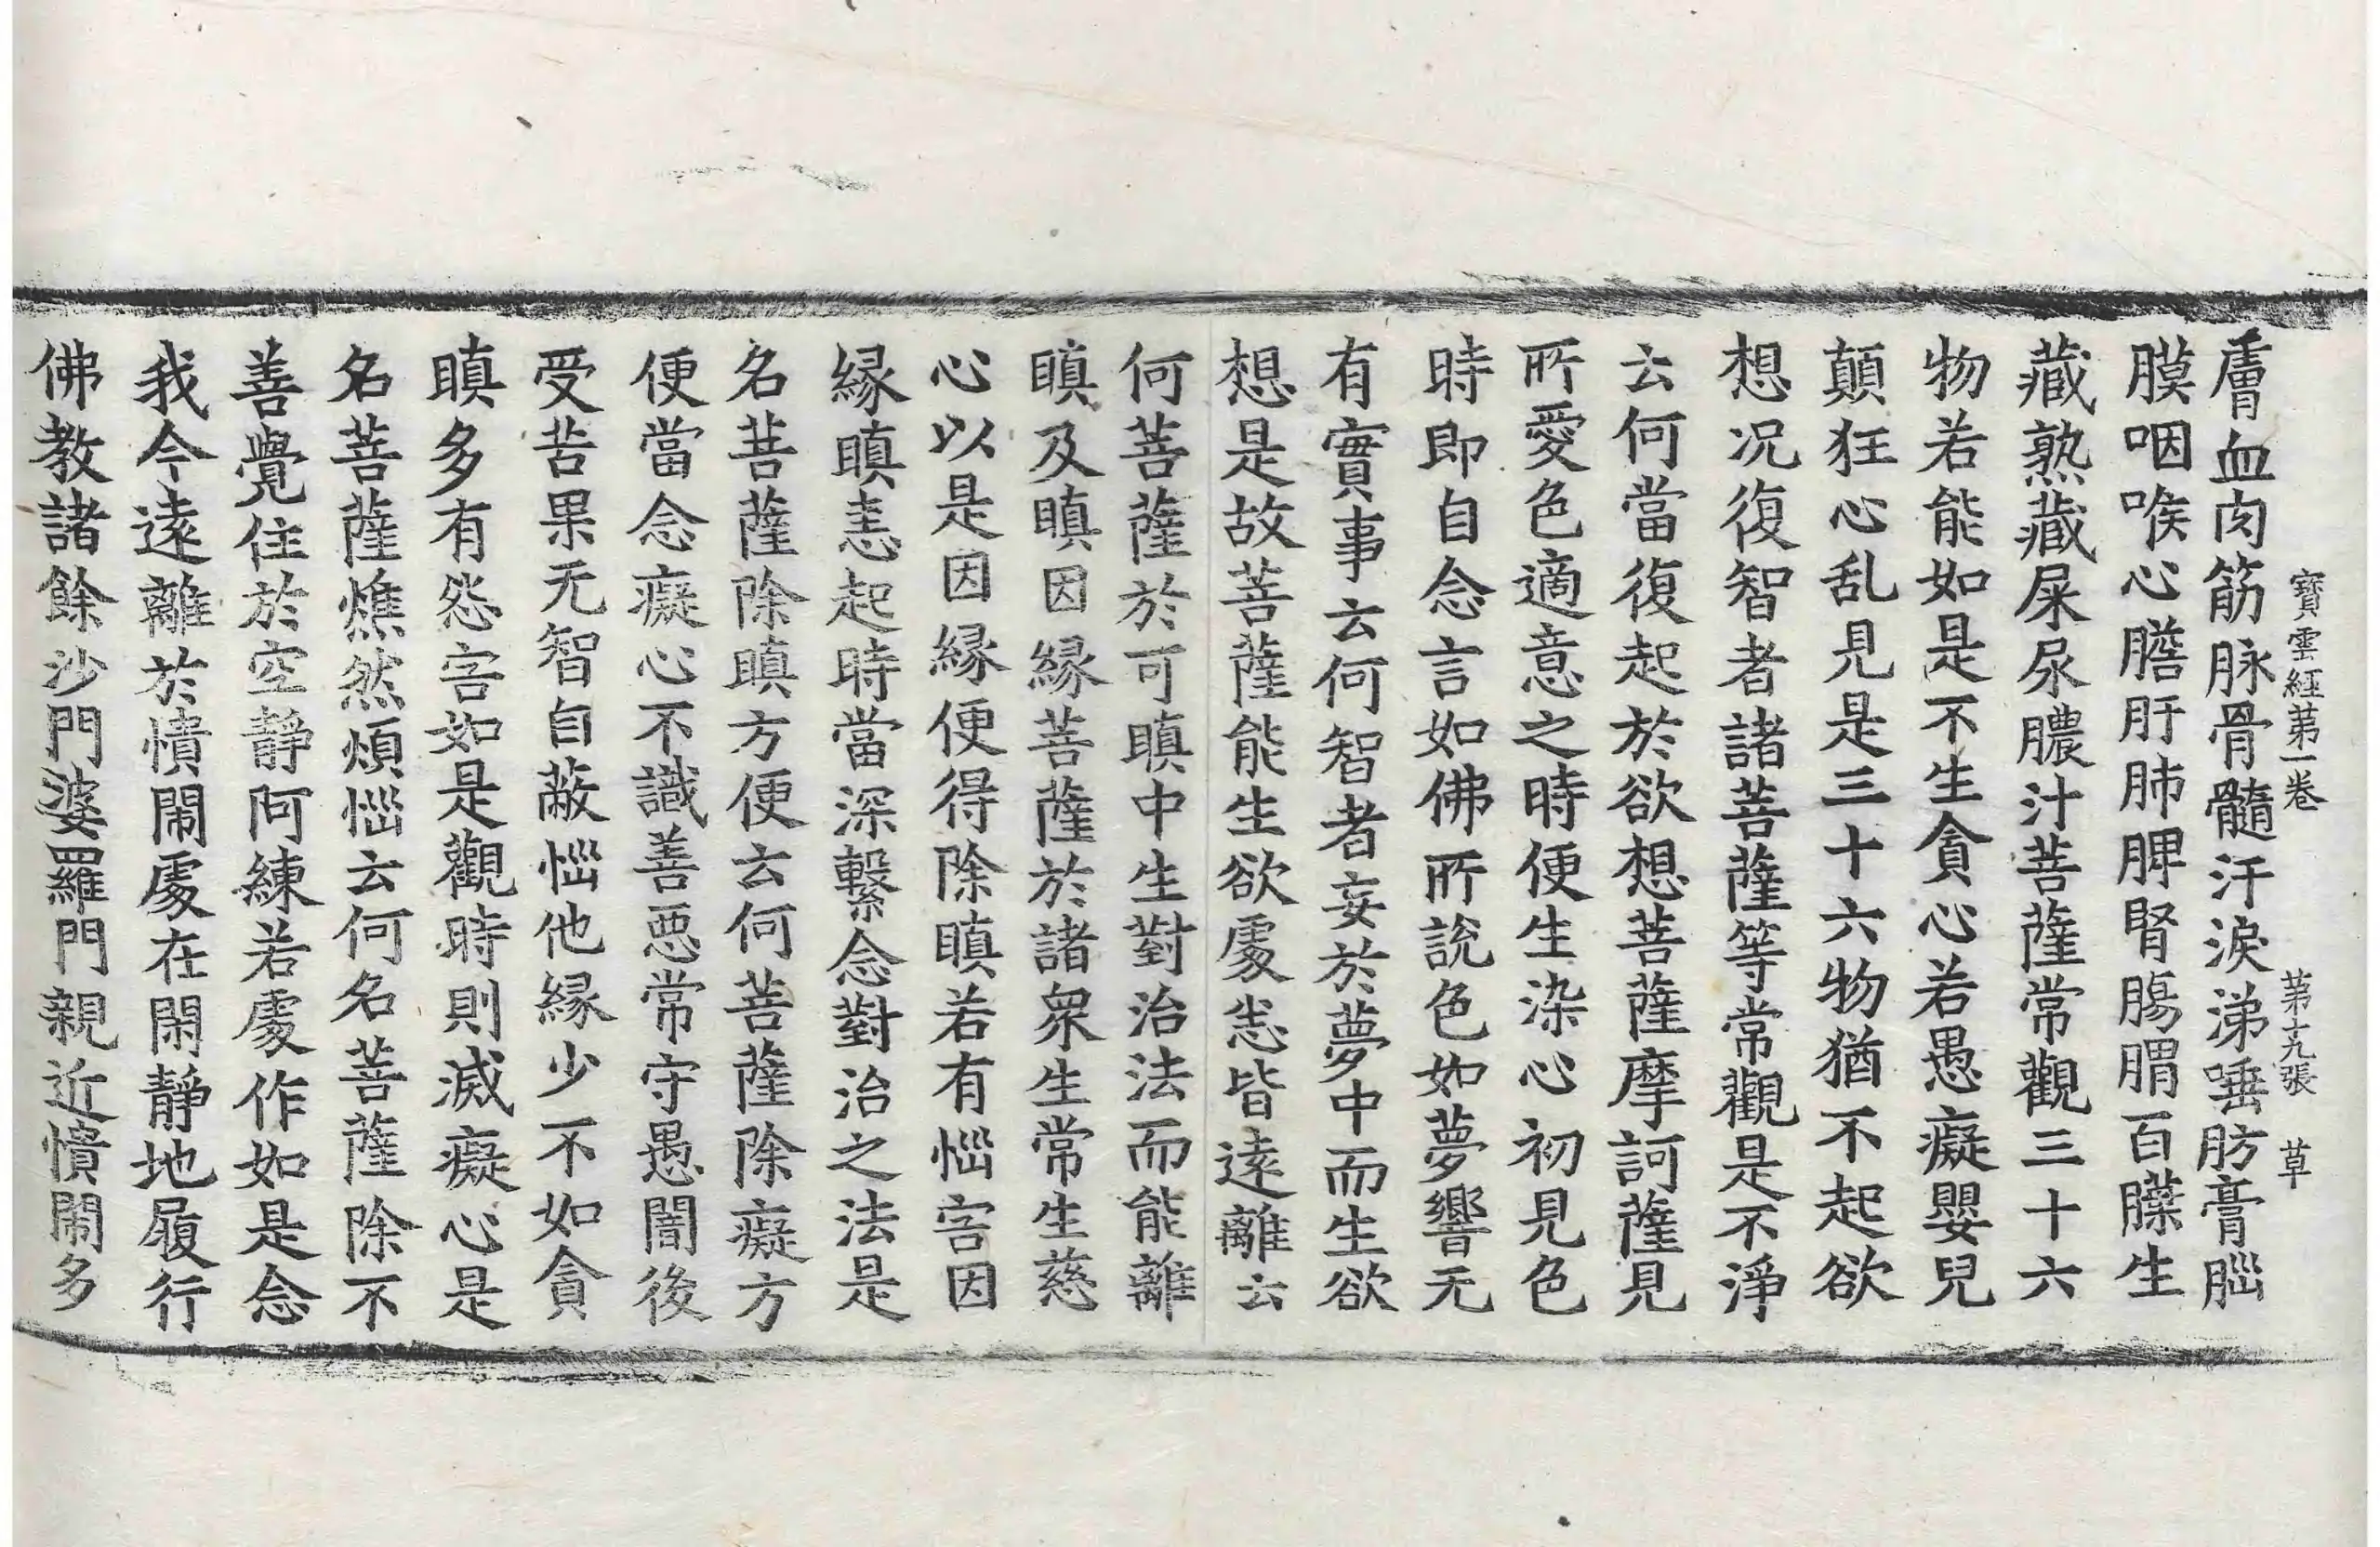 寶雲經第一卷 第十九張 草
膚血肉筋脉骨髓汗淚涕唾肪膏𦛁
膜咽喉心膽肝肺脾腎膓胃百𦢊生
藏熟藏屎尿膿汁菩薩常觀三十六
物若能如是不生貪心若愚癡嬰兒
顛狂心乱見是三十六物猶不起欲
想况復智者諸菩薩等常觀是不淨
云何當復起於欲想菩薩摩訶薩見
所愛色適意之時便生染心初見色
時即自念言如佛所說色如夢響无
有實事云何智者妄於夢中而生欲
想是故菩薩能生欲處恚皆遠離云
何菩薩於可瞋中生對治法而能離
瞋及瞋因縁菩薩於諸衆生常生慈
心以是因縁便得除瞋若有惱害因
縁瞋恚起時當深繫念對治之法是
名菩薩除瞋方便云何菩薩除癡方
便當念癡心不識善惡常守愚闇後
受苦果无智自蔽惱他縁少不如貪
瞋多有怨害如是觀時則滅癡心是
名菩薩燋然煩惱云何名菩薩除不
善覺住於空静阿練若處作如是念
我今遠離於憒閙處在閑静地履行
佛教諸餘沙門婆羅門親近憒閙多